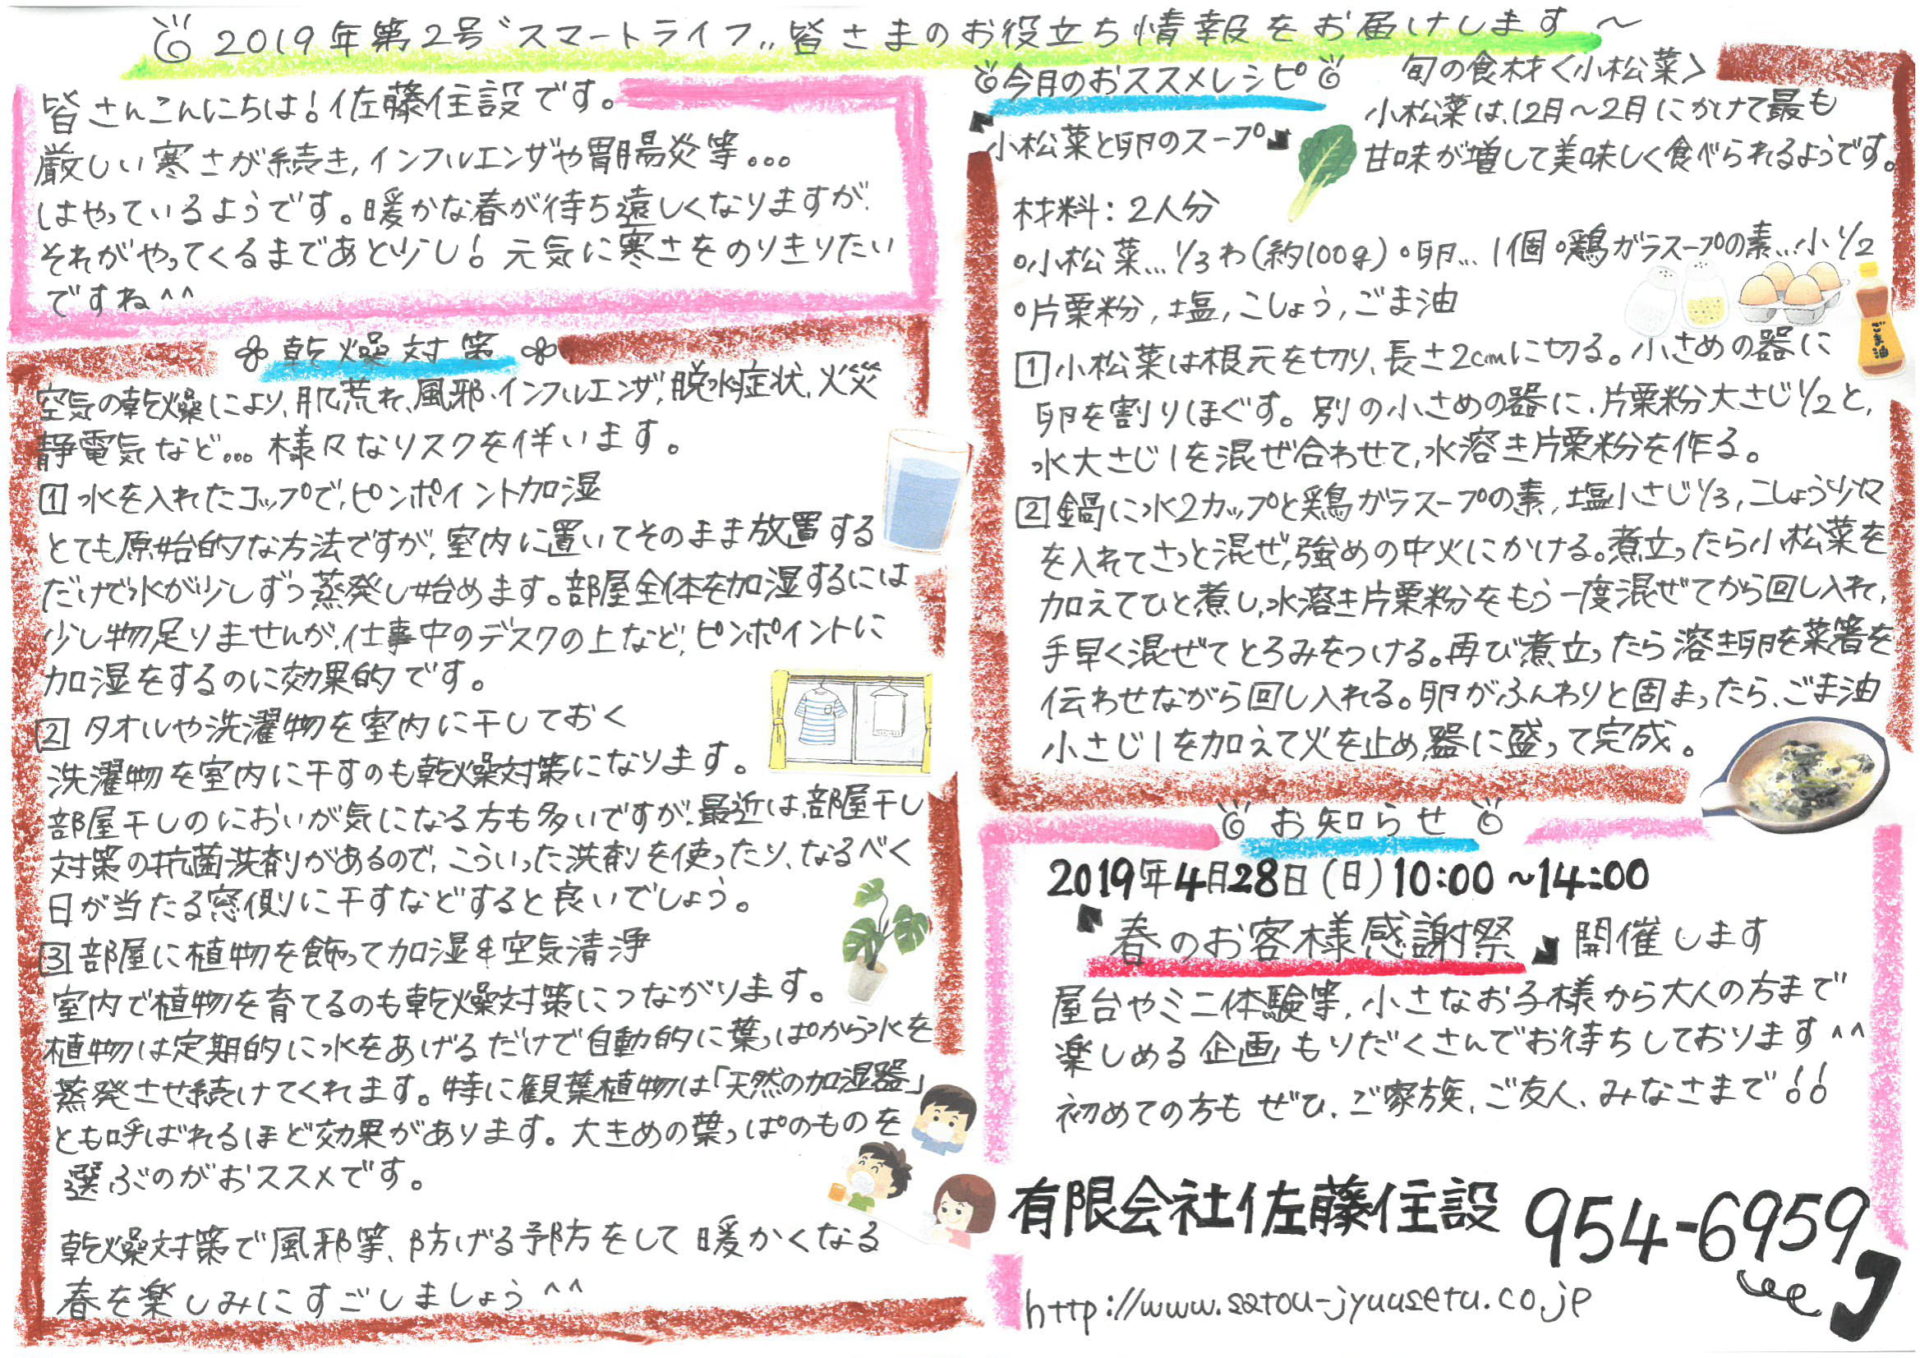 2019年第2号〝スマートライフ〟皆さまのお役立ち情報をお届けします〜
皆さんこんにちは!佐藤住設です。
厳しい寒さが続き,インフルエンザや胃腸炎等...
はやっているようです。暖かな春が待ち遠しくなりますが、
それがやってくるまであと少し!元気に寒さをのりきりたい
ですね^^
乾燥対策
空気の乾燥により、肌荒れ、風邪・インフルエンザ、脱水症状、火災
静電気など...様々なリスクを伴います。
1 水を入れたコップで、ピンポイント加湿
とても原始的な方法ですが、室内に置いてそのまま放置する
だけで水が少しずつ蒸発し始めます。部屋全体を加湿するには
少し物足りませんが、仕事中のデスクの上など、ピンポイントに
加湿をするのに効果的です。
2 タオルや洗濯物を室内に干しておく
洗濯物を室内に干すのも乾燥対策になります。
部屋干しのにおいが気になる方も多いですが、最近は、部屋干し
対策の抗菌洗剤があるので、こういった洗剤を使ったり、なるべく
日が当たる窓側に干すなどすると良いでしょう。
3 部屋に植物を飾って加湿&空気清浄
室内で植物を育てるのも乾燥対策につながります。
植物は定期的に水をあげるだけで自動的に葉っぱから水を
蒸発させ続けてくれます。特に観葉植物は「天然の加湿器」
とも呼ばれるほど効果があります。大きめの葉っぱのものを
選ぶのがおススメです。
乾燥対策で風邪等、防げる予防をして暖かくなる
春を楽しみにすごしましょう^^
今月のおススメレシピ
『小松菜と卵のスープ』
旬の食材<小松菜>
小松菜は、12月〜2月にかけて最も
甘味が増して美味しく食べられるようです。
材料:2人分
○小松菜...1/3わ(約100g)○卵...1個○鶏ガラスープの素...小1/2
○片栗粉,塩,こしょう,ごま油
ごま油
1 小松菜は根元を切り、長さ2cmに切る。小さめの器に
卵を割りほぐす。別の小さめの器に、片栗粉大さじ1/2と、
水大さじ1を混ぜ合わせて、水溶き片栗粉を作る。
2 鍋に水2カップと鶏ガラスープの素,塩小さじ1/3,こしょう少々
を入れてさっと混ぜ、強めの中火にかける。煮立ったら小松菜を
加えてひと煮し、水溶き片栗粉をもう一度混ぜてから回し入れ、
手早く混ぜてとろみをつける。再び煮立ったら溶き卵を菜箸を
伝わせながら回し入れる。卵がふんわりと固まったら、ごま油
小さじ1を加えて火を止め、器に盛って完成。
お知らせ
2019年4月28日(日)10:00〜14:00
『春のお客様感謝祭』開催します
屋台やミニ体験等、小さなお子様から大人の方まで
楽しめる企画もりだくさんでお待ちしております^^
初めての方もぜひ、ご家族、ご友人、みなさまで!!
有限会社佐藤住設 954-6959
http://www.satou-jyuusetu.co.jp